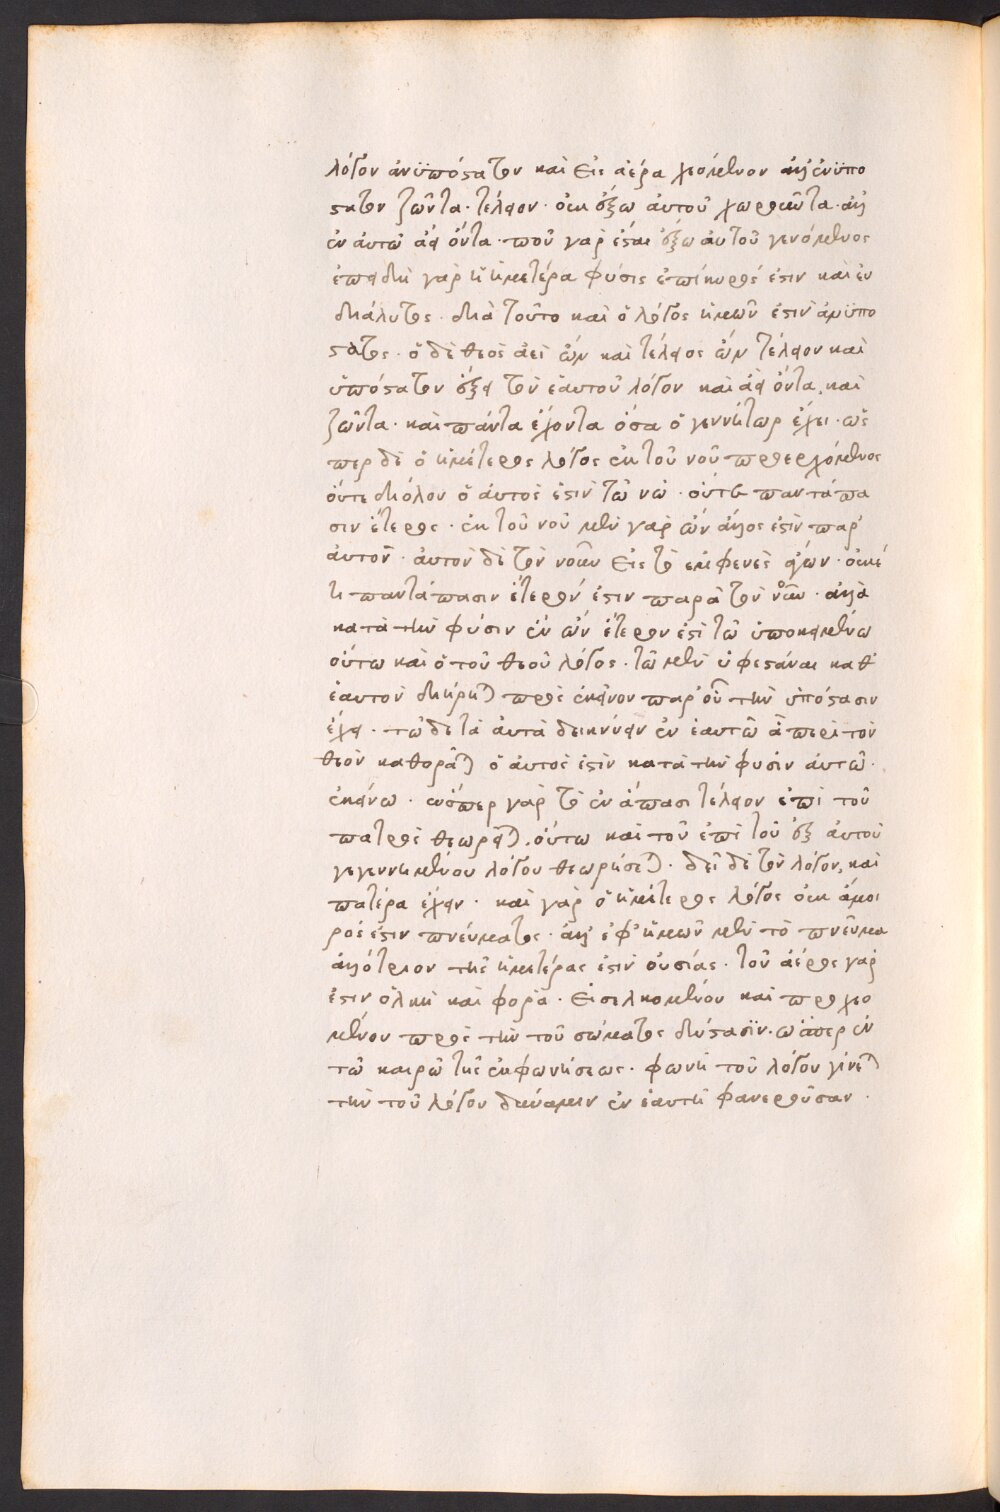 λόγον ἀνϋπόστατον καὶ εἰς ἀέρα χεόμενον ἀλλ' ἐνϋπο
στατον ζῶντα· τέλειον· οὐκ ἔξω αὐτοῦ χωροῦντα· ἀλλ'
ἐν αὐτῶ ἀεὶ ὄντα· ποῦ γὰρ ἔσται ἔξω αὐτοῦ γενόμενος
ἐπειδὴ γὰρ ἡ ἡμετέρα φύσις ἐπίκηρός ἐστιν καὶ εὐ
διάλυτος· διὰ τοῦτο καὶ ὁ λόγος ἡμῶν ἐστὶν ἀνϋπό
στατος· ὁ δὲ θεὸς ἀεὶ ὢν καὶ τέλειος ὢν τέλειον καὶ
ὑπόστατον ἕξει τὸν ἑαυτοῦ λόγον καὶ ἀεὶ ὄντα, καὶ
ζῶντα· καὶ πάντα ἔχοντα ὅσα ὁ γεννήτωρ ἔχει· ὥσ
περ δὲ ὁ ἡμέτερος λόγος ἐκ τοῦ νοῦ προερχόμενος
οὔτε διόλου ὁ αὐτός ἐστὶν τῶ νῶ· οὔτε παντάπα
σιν ἕτερος· ἐκ τοῦ νοῦ μὲν γὰρ ὢν ἄλλος ἐστὶν παρ'
αὐτόν· αὐτὸν δὲ τὸν νοῦν εἰς τὸ ἐμφανὲς ἄγων· οὐκέ
τι παντάπασιν ἕτερόν ἐστιν παρὰ τὸν νοῦν· ἀλλὰ
κατὰ τὴν φύσιν ἓν ὢν ἕτερον ἐστὶ τῶ ὑποκειμένω
οὕτω καὶ ὁ τοῦ θεοῦ λόγος· τῶ μὲν ὑφεστάναι καθ'
ἑαυτὸν διήρηται πρὸς ἐκεῖνον παρ' οὗ τὴν ὑπόστασιν
ἔχει· τῶ δὲ τὰ αὐτὰ δεικνύειν ἐν ἑαυτῶ ἃ περὶ τὸν
θεὸν καθορᾶται ὁ αὐτός ἐστὶν κατὰ τὴν φύσιν αὐτῶ·
ἐκείνω· ὥσπερ γὰρ τὸ ἐν ἅπασι τέλειον ἐπὶ τοῦ
πατρὸς θεωρεῖται, οὕτω καὶ τοῦ ἐπὶ τοῦ ἐξ αὐτοῦ
γεγεννημένου λόγου θεωρήσεται· δεῖ δὲ τὸν λόγον, καὶ
πατέρα ἔχειν· καὶ γὰρ ὁ ἡμέτερος λόγος οὐκ ἄμοι
ρός ἐστιν πνεύματος· ἀλλ' ἐφ' ἡμῶν μὲν τὸ πνεῦμα
ἀλλότριον τῆς ἡμετέρας ἐστὶν οὐσίας· τοῦ ἀέρος γάρ
ἐστιν ὁλκὴ καὶ φορά· εἰσελκομένου καὶ προχεο
μένου πρὸς τὴν τοῦ σώματος σύστασϊν· ὡ ἅπερ ἐν
τῶ καιρῶ τῆς ἐκφωνήσεως· φωνὴ τοῦ λόγου γίνεται
τὴν τοῦ λόγου δύναμιν ἐν ἑαυτῇ φανεροῦσαν·